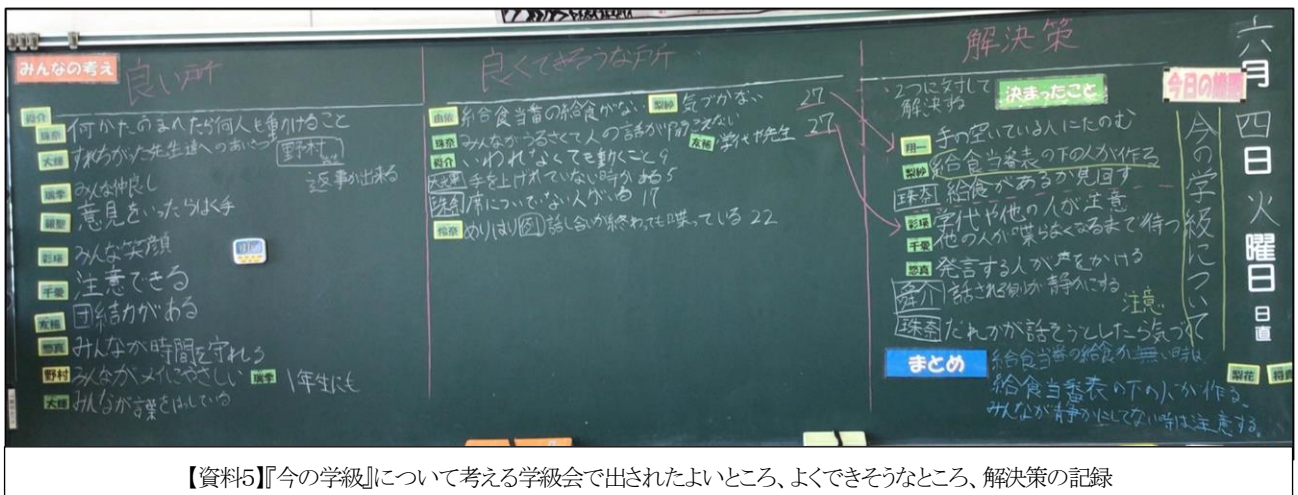 みんなの考え
良い所
何かたのまれたら何人も動けること
すれちがった先生達へのあいさつ 野村
返事が出来る
みんな仲良し
意見をいったらはく手
みんな笑顔
注意できる
団結力がある
みんなが時間を守れる
野村 みんながメイにやさしい 瑞季 1年生にも
大輝 みんなが言葉を
良くできそうな所
由依 給食当番の給食がない 梨紗 気づかない 27
珠奈 みんながうるさくて人の話が聞こえない 友極 学代や先生 27
いわれなくても動くこと 9
手を上げれていない時がある 5
珠奈 席についていない人がいる 17
怜奈 めりはり 話し合いが終わっても喋っている 22
解決策
2つに対して
解決する
決まったこと
翔一 手の空いている人にたのむ
梨紗 給食当番表の下の人が作る
珠奈 給食があるか見回す
彩瑛 学代や他の人が注意
千愛 他の人が喋らなくなるまで待つ
悠真 発言する人が声をかける
話される側が静かにする
注意
珠奈 だれかが話そうとしたら気づく
まとめ
給食当番の給食が無い時は
給食当番表の下の人が作る。
みんなが静かにしてない時は注意する。
今日の議題
今の学級について
六月四日火曜日
日直
梨花
【資料5】『今の学級』について考える学級会で出されたよいところ、よくできそうなところ、解決策の記録